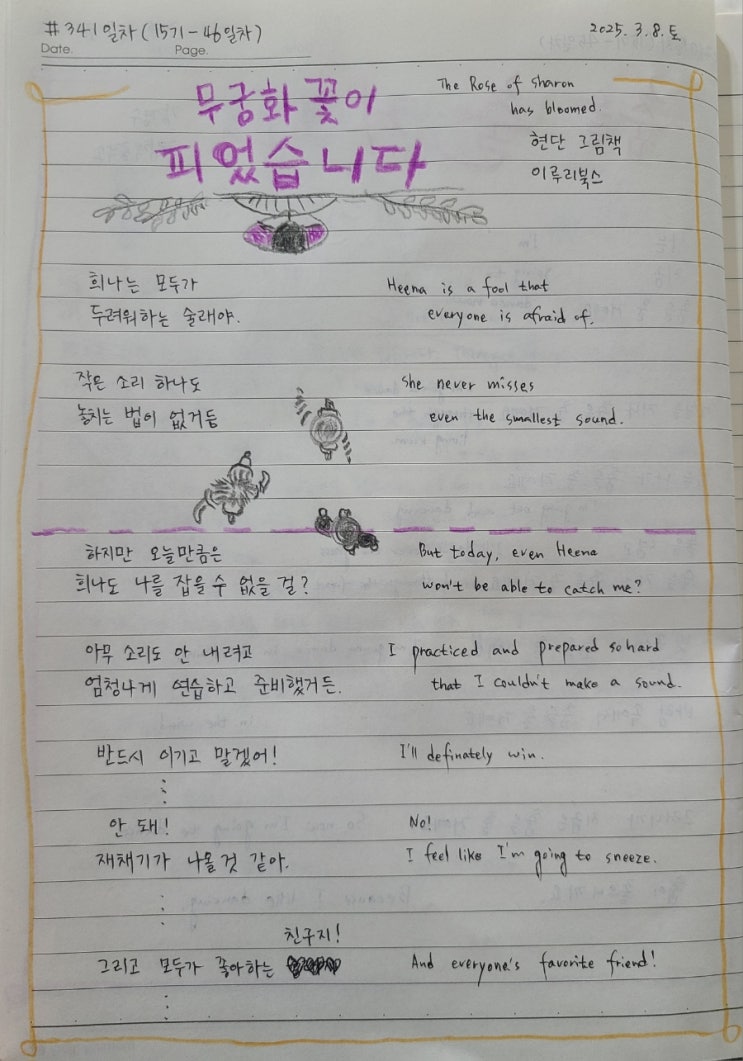 #341일차(15기-46일차)
2025. 3. 8. 토
Date. Page.
무궁화 꽃이
피었습니다
The Rose of Sharon
has bloomed.
현단 그림책
이루리북스
희나는 모두가
두려워하는 술래야.
Heena is a fool that
everyone is afraid of.
작은 소리 하나도
놓치는 법이 없거든
She never misses
even the smallest sound.
하지만 오늘만큼은
희나도 나를 잡을 수 없을 걸?
But today, even Heena
won't be able to catch me?
아무 소리도 안 내려고
엄청나게 연습하고 준비했거든.
I practiced and prepared so hard
that I couldn't make a sound.
반드시 이기고 말겠어!
I'll definately win.
안 돼!
No!
재채기가 나올 것 같아.
I feel like I'm going to sneeze.
친구지!
그리고 모두가 좋아하는
And everyone's favorite friend!